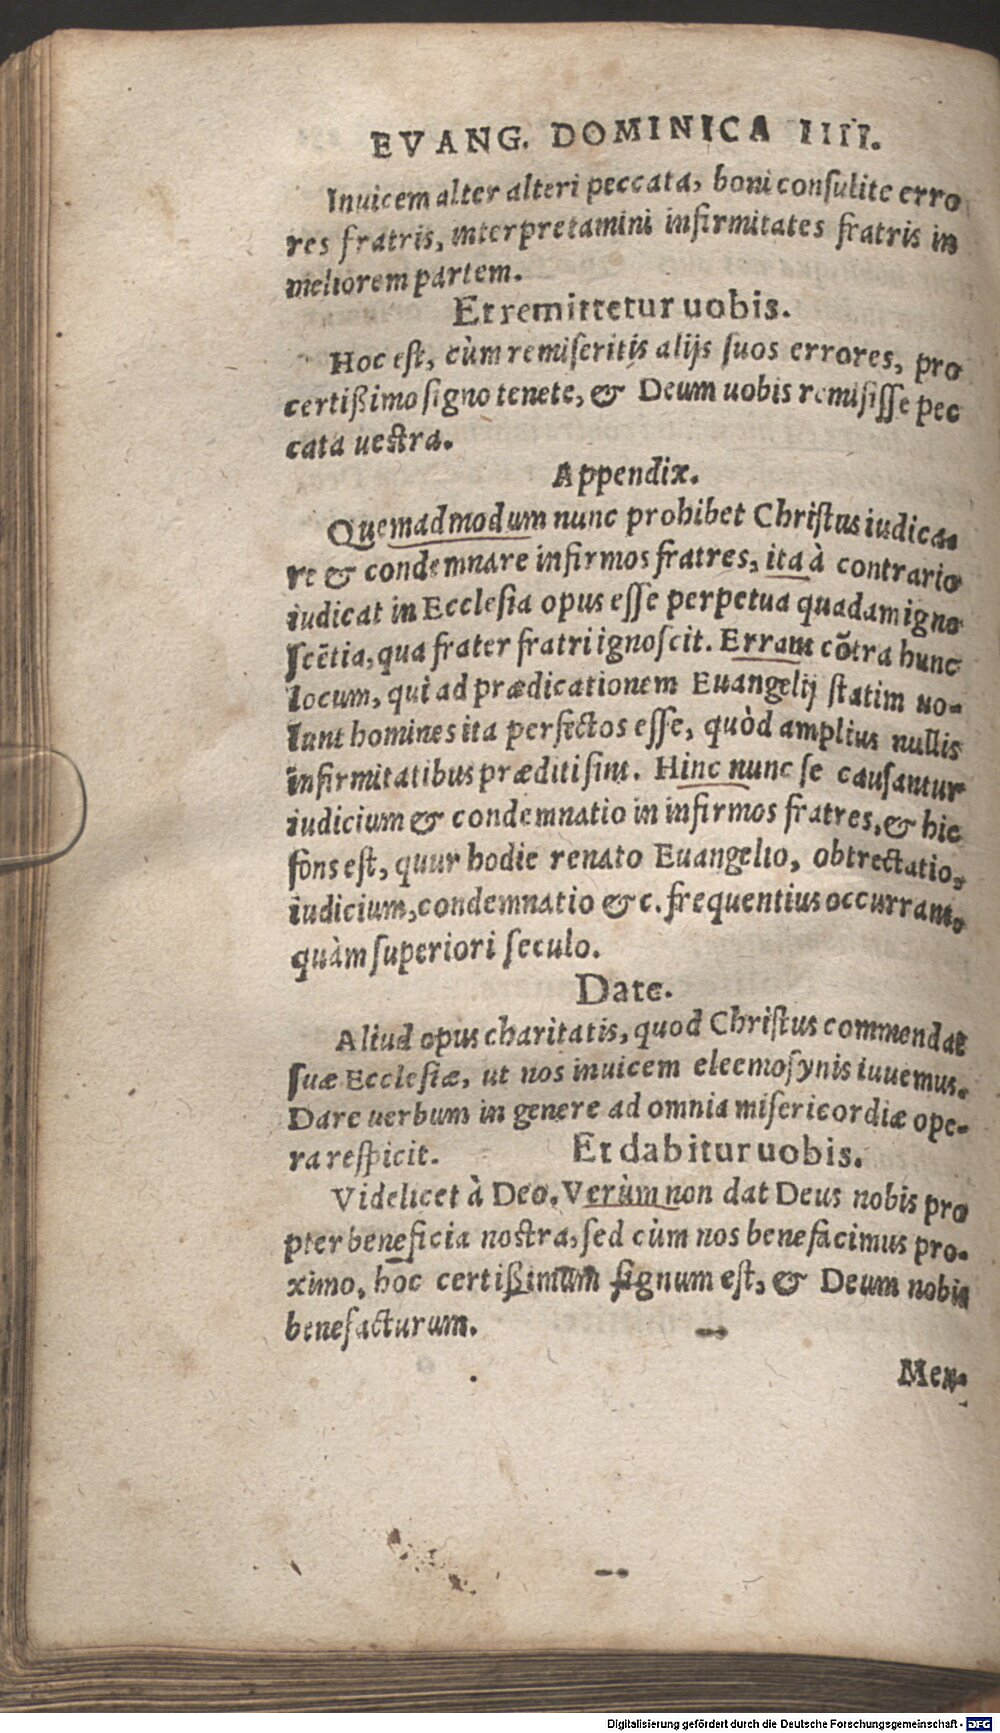 EVANG. DOMINICA IIII.
Inuicem alter alteri peccata, boni consulite erro
res fratris, interpretamini infirmitates fratris in
meliorem partem.
Et remittetur uobis.
Hoc est, cùm remiseritis alijs suos errores, pro
certißimo signo tenete, & Deum uobis remisisse pec
cata uestra.
Appendix.
Quemadmodum nunc prohibet Christus iudica-
re & condemnare infirmos fratres, ita à contrario
iudicat in Ecclesia opus esse perpetua quadam igno
scẽtia, qua frater fratri ignoscit. Errant cõtra hunc
locum, qui ad prædicationem Euangelij statim uo-
lunt homines ita perfectos esse, quòd amplius nullis
infirmitatibus præditi sint. Hinc nunc se causantur
iudicium & condemnatio in infirmos fratres, & hic
fons est, quur hodie renato Euangelio, obtrectatio,
iudicium, condemnatio &c. frequentius occurrant,
quàm superiori seculo.
Date.
Aliud opus charitatis, quod Christus commendat
suæ Ecclesiæ, ut nos inuicem eleemosynis iuuemus.
Dare uerbum in genere ad omnia misericordiæ ope-
ra respicit. Et dabitur uobis.
Videlicet à Deo. Verùm non dat Deus nobis pro
pter beneficia nostra, sed cùm nos benefacimus pro-
ximo, hoc certißimum signum est, & Deum nobis
benefacturum.
Men-
Digitalisierung gefördert durch die Deutsche Forschungsgemeinschaft - DFG